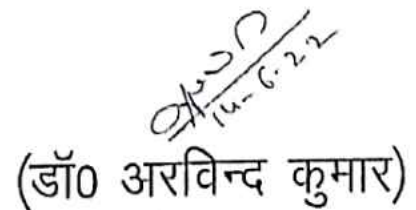 14-6-22
(डॉ0 अरविन्द कुमार)